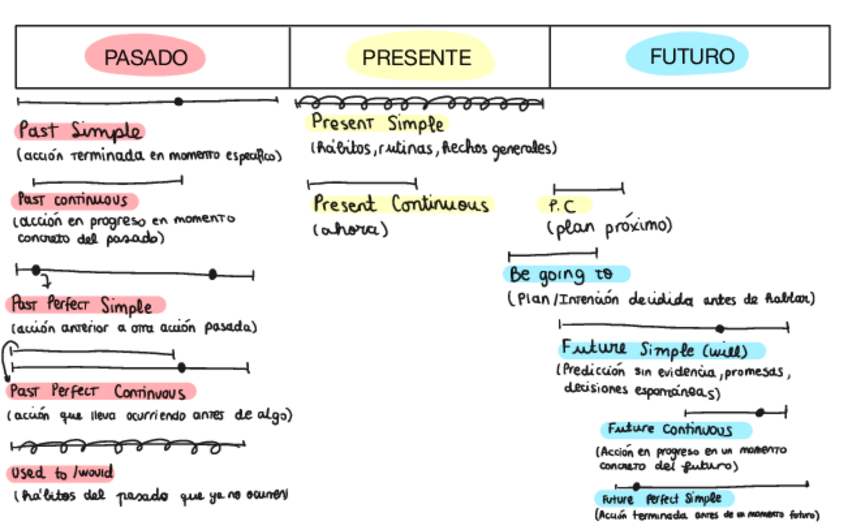 PASADO
PRESENTE
FUTURO
Past Simple
(acción terminada en momento específico)
Past continuous
(acción en progreso en momento
concreto del pasado)
Past Perfect Simple
(acción anterior a otra acción pasada)
Past Perfect Continuous
(acción que lleva ocurriendo antes de algo)
Used to /would
(hábitos del pasado que ya no ocurren)
Present Simple
(hábitos, rutinas, hechos generales)
Present Continuous
(ahora)
P.C
(plan próximo)
Be going to
(Plan/Intención decidida antes de hablar)
Future Simple (will)
(Predicción sin evidencia, promesas,
decisiones espontáneas)
Future Continuous
(Acción en progreso en un momento
concreto del futuro)
Future Perfect Simple
(Acción terminada antes de un momento futuro)